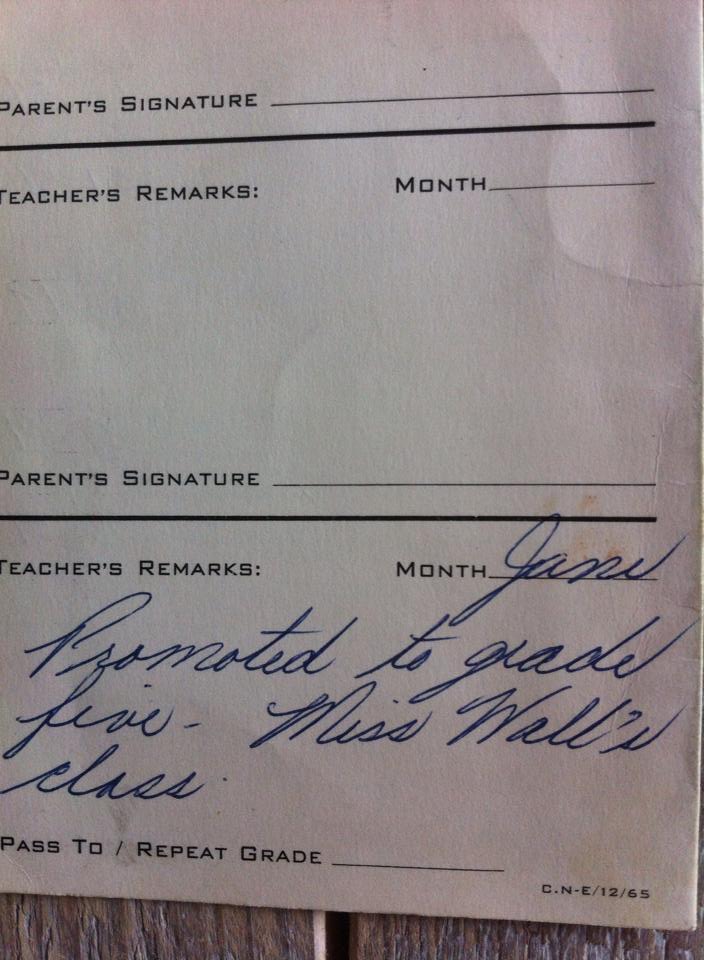 PARENT'S SIGNATURE
TEACHER'S REMARKS: MONTH
PARENT'S SIGNATURE
TEACHER'S REMARKS: MONTH June
Promoted to grade
five - Miss Wall's
class.
PASS TO / REPEAT GRADE
C.N-E/12/65